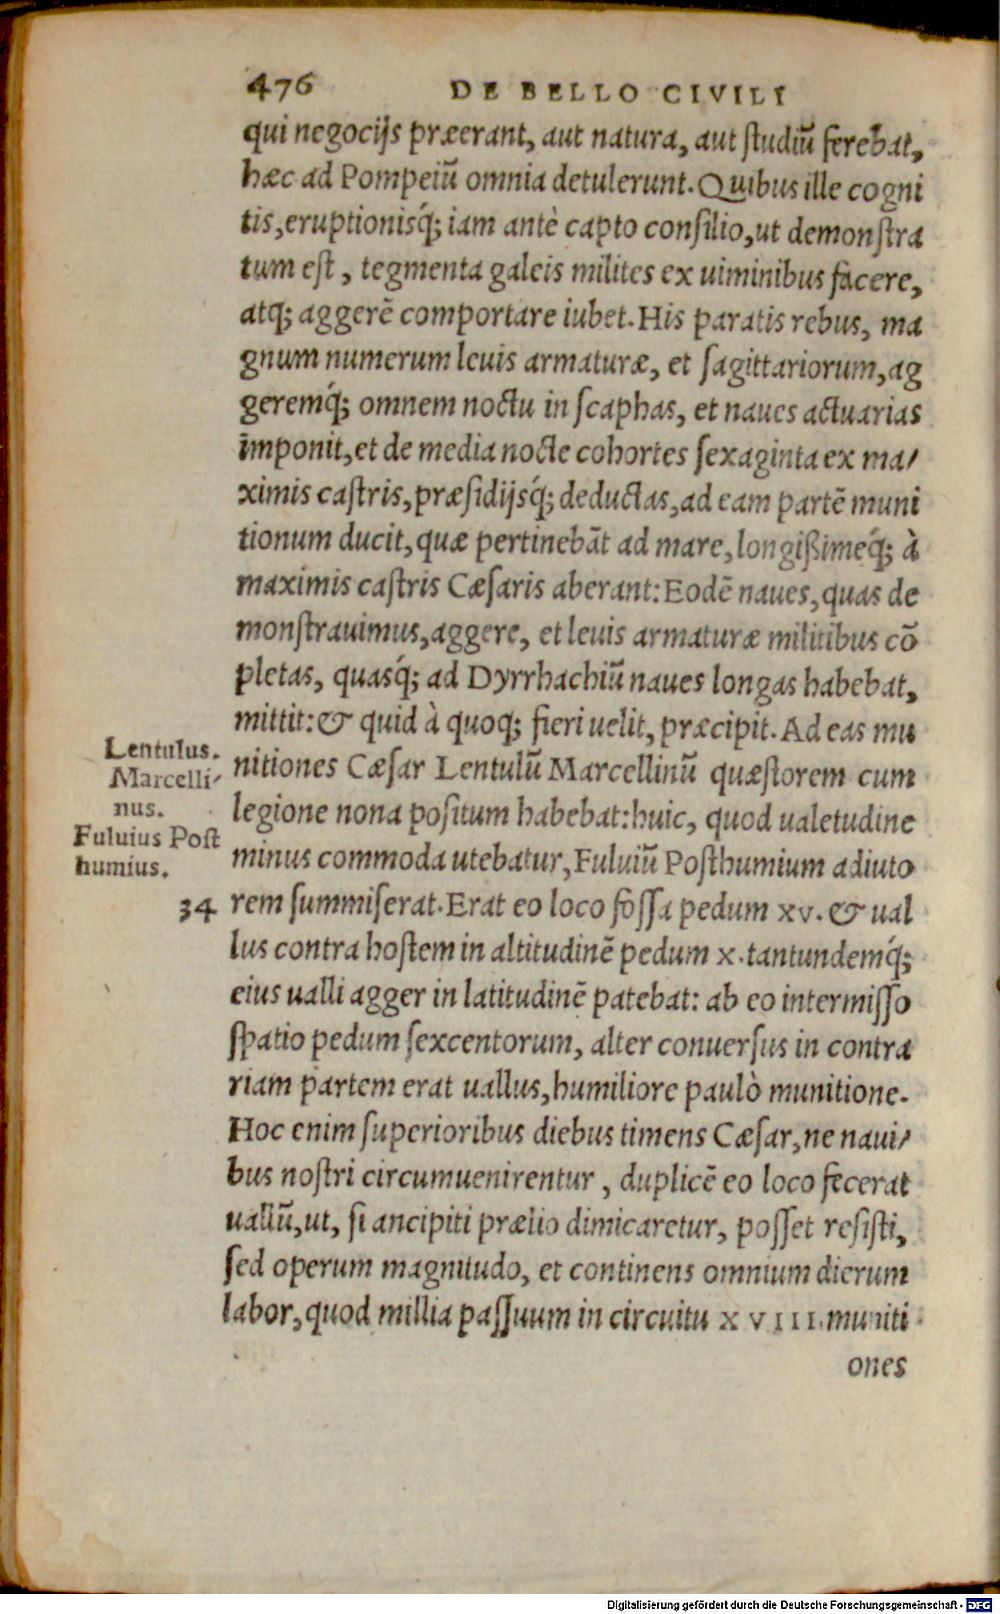 476 DE BELLO CIVILI
qui negocijs præerant, aut natura, aut ſtudiū ferebat,
hæc ad Pompeiū omnia detulerunt. Quibus ille cogni
tis, eruptionisq́; iam antè capto conſilio, ut demonſtra
tum eſt, tegmenta galeis milites ex uiminibus facere,
atq; aggerē comportare iubet. His paratis rebus, ma
gnum numerum leuis armaturæ, et ſagittariorum, ag
geremq́; omnem noctu in ſcaphas, et naues actuarias
imponit, et de media nocte cohortes ſexaginta ex ma/
ximis caſtris, præſidijsq́; deductas, ad eam partē muni
tionum ducit, quæ pertinebāt ad mare, longißimeq́; à
maximis caſtris Cæſaris aberant: Eodē naues, quas de
monſtrauimus, aggere, et leuis armaturæ militibus cō
pletas, quasq́; ad Dyrrhachiū naues longas habebat,
mittit: & quid à quoq; fieri uelit, præcipit. Ad eas mu
nitiones Cæſar Lentulū Marcellinū quæſtorem cum
legione nona poſitum habebat: huic, quod ualetudine
minus commoda utebatur, Fuluiū Poſthumium adiuto
rem ſummiſerat. Erat eo loco foſſa pedum xv. & ual
lus contra hoſtem in altitudinē pedum x. tantundemq́;
eius ualli agger in latitudinē patebat: ab eo intermiſſo
ſpatio pedum ſexcentorum, alter conuerſus in contra
riam partem erat uallus, humiliore paulò munitione.
Hoc enim ſuperioribus diebus timens Cæſar, ne naui/
bus noſtri circumuenirentur, duplicē eo loco fecerat
uallū, ut, ſi ancipiti prælio dimicaretur, poſſet reſiſti,
ſed operum magnitudo, et continens omnium dierum
labor, quod millia paſſuum in circuitu XVIII. muniti
ones
Lentulus.
Marcelli-
nus.
Fuluius Poſt
humius.
34
Digitalisierung gefördert durch die Deutsche Forschungsgemeinschaft - DFG